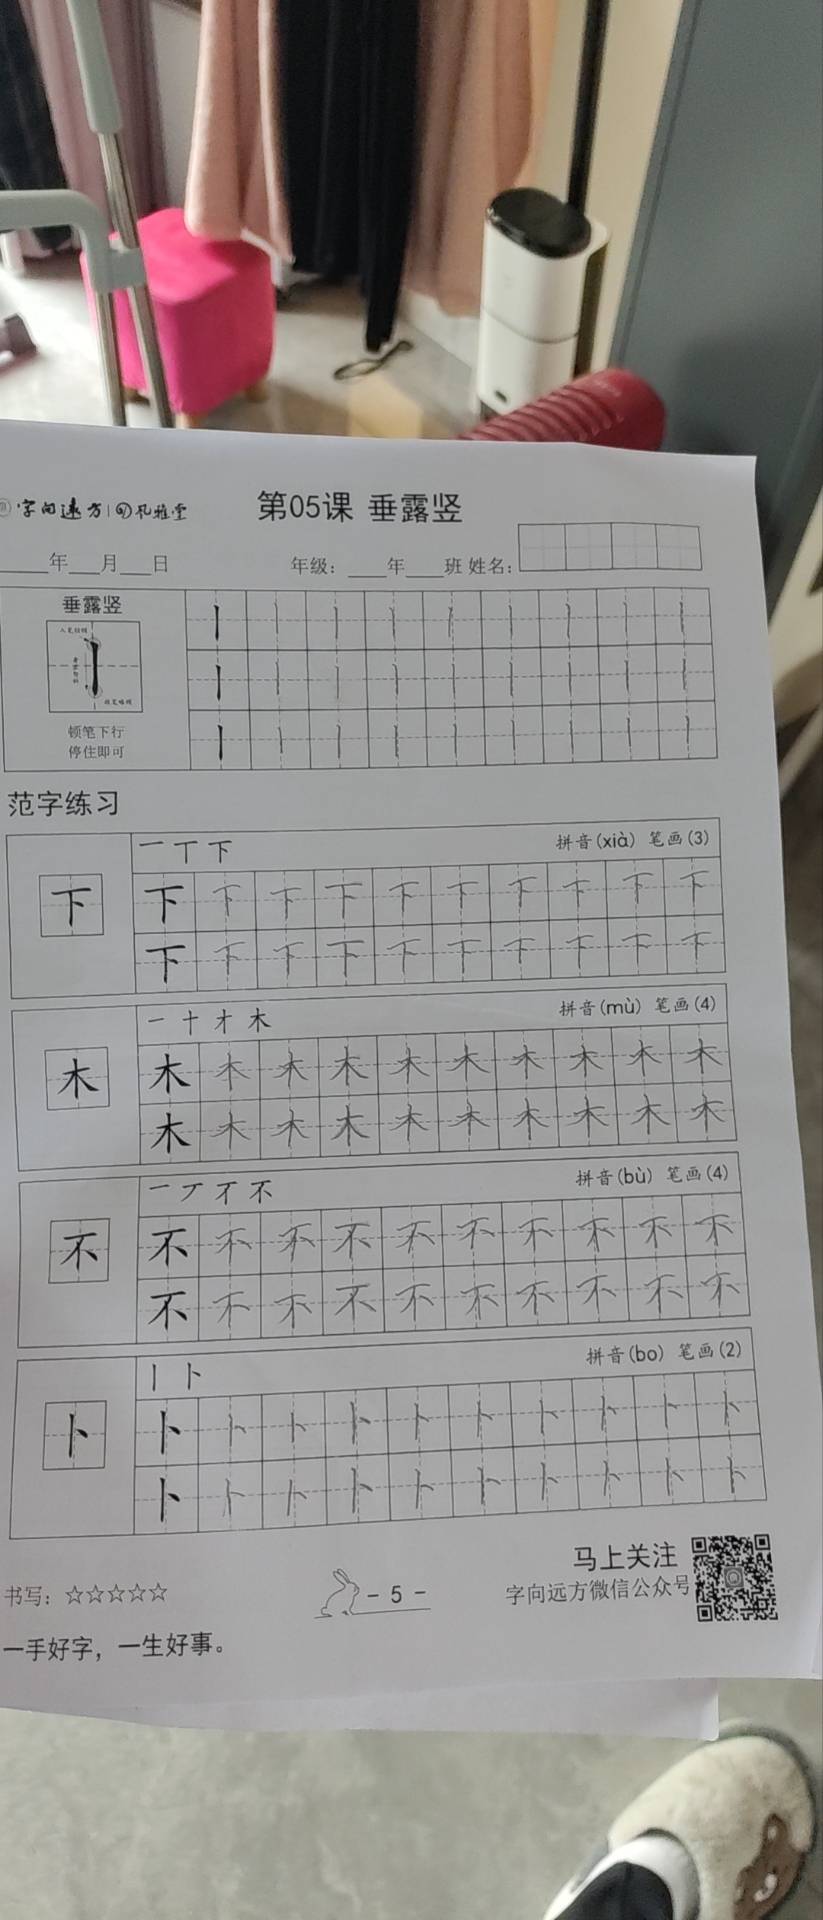 字向远方|習礼雅堂
第05课 垂露竖
____年___月___日 年级：____年____班 姓名：
垂露竖
顿笔下行
停住即可
范字练习
一丁下 拼音(xià) 笔画(3)
下 下 下 下 下 下 下 下 下 下 下
下 下 下 下 下 下 下 下 下 下
一十才木 拼音(mù) 笔画(4)
木 木 木 木 木 木 木 木 木 木 木
木 木 木 木 木 木 木 木 木 木
一丆不不 拼音(bù) 笔画(4)
不 不 不 不 不 不 不 不 不 不 不
不 不 不 不 不 不 不 不 不 不
丨卜 拼音(bo) 笔画(2)
卜 卜 卜 卜 卜 卜 卜 卜 卜 卜 卜
卜 卜 卜 卜 卜 卜 卜 卜 卜 卜
马上关注
书写：☆☆☆☆☆ - 5 - 字向远方微信公众号
一手好字，一生好事。